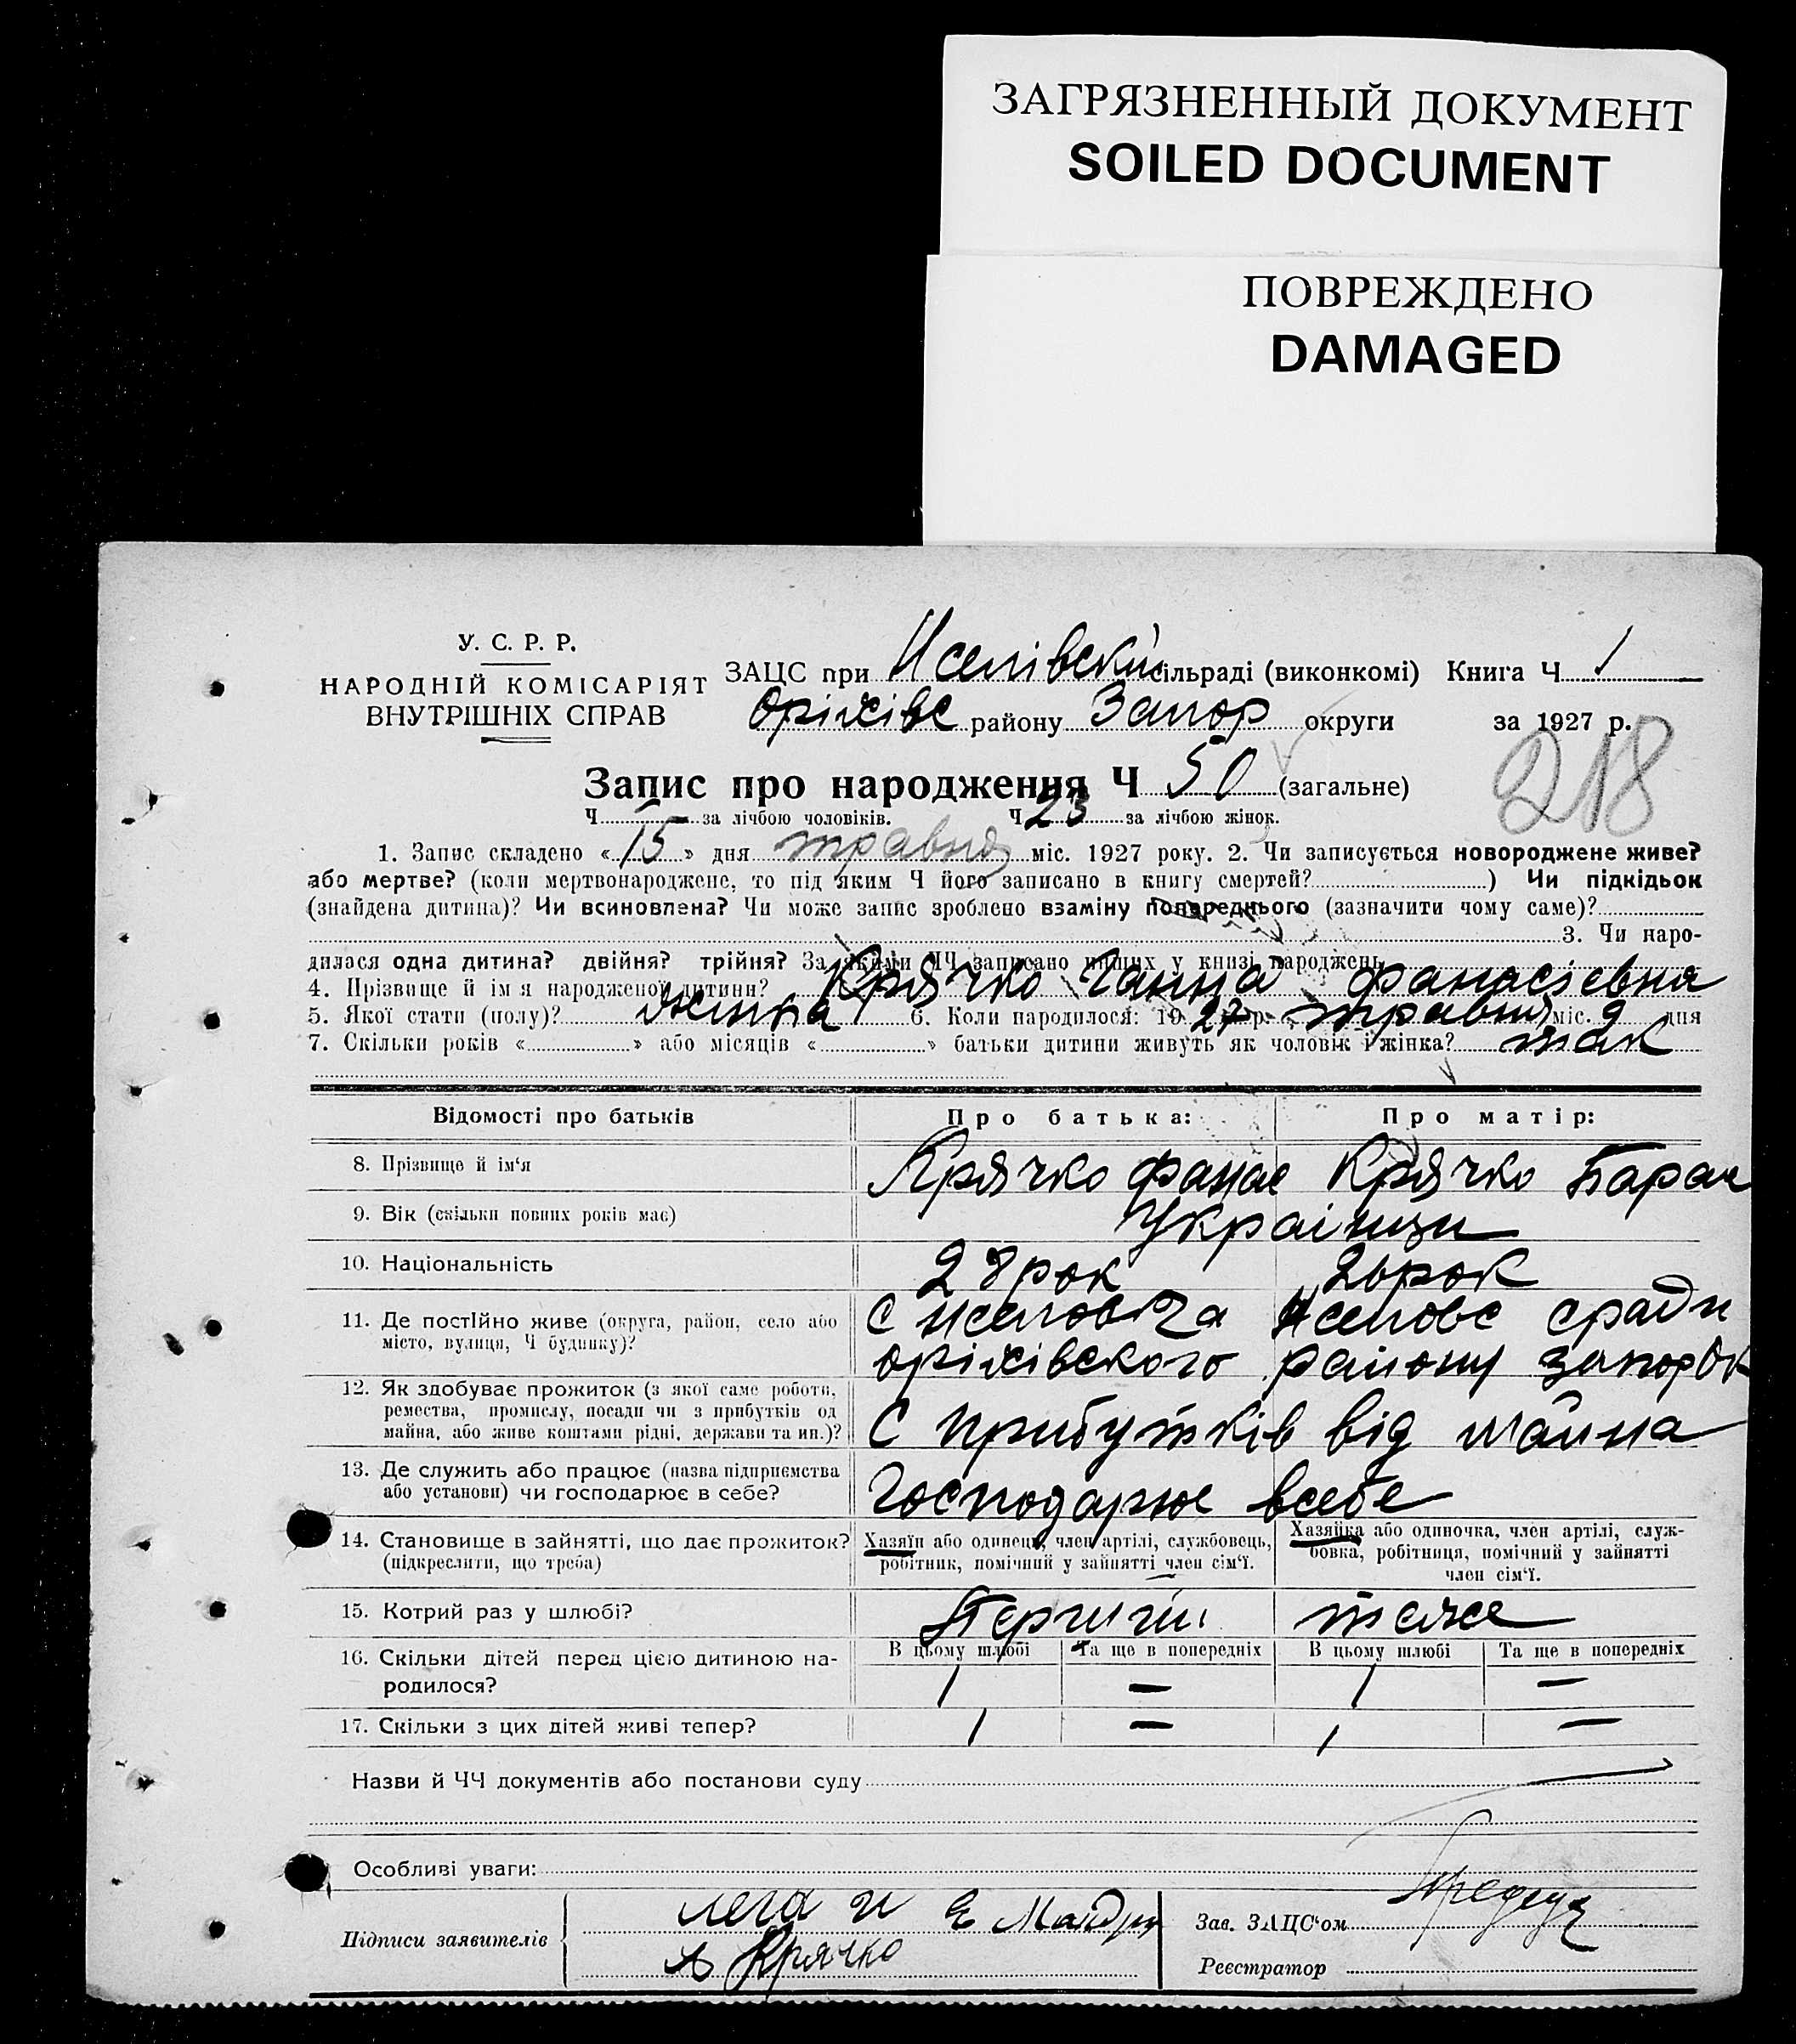 ЗАГРЯЗНЕННЫЙ ДОКУМЕНТ
SOILED DOCUMENT
ПОВРЕЖДЕНО
DAMAGED
У. С. Р. Р.
НАРОДНІЙ КОМІСАРІЯТ
ВНУТРІШНІХ СПРАВ
ЗАЦС при сільраді (виконкомі) Книга Ч 1
Оріхівс району Запор округи за 1927 р.
218
Запис про народження Ч 50 (загальне)
Ч за лічбою чоловіків. Ч 23 за лічбою жінок.
1. Запис складено « 15 » дня травня міс. 1927 року. 2. Чи записується новороджене живе?
або мертве? (коли мертвонароджене, то під яким Ч його записано в книгу смертей? ) Чи підкідьок
(знайдена дитина)? Чи всиновлена? Чи може запис зроблено взаміну попереднього (зазначити чому саме)?
3. Чи наро-
дилася одна дитина? двійня? трійня? За якими ЧЧ записано инших у книзі народжень
4. Прізвище й ім я народженої дитини? Крячко Ганна Фанасіевна
5. Якої стати (полу)? жинка 6. Коли народилося: 19 27 р. травня міс. 9 дня
7. Скільки років « » або місяців « » батьки дитини живуть як чоловік і жінка? так
Відомості про батьків Про батька: Про матір:
8. Прізвище й ім‘я Крячко Фанас Крячко
9. Вік (скільки повних років має) Украінци
10. Національність 28 рок 26 рок
11. Де постійно живе (округа, район, село або
місто, вулиця, Ч будинку)?
оріхівского району запор ок
12. Як здобуває прожиток (з якої саме роботи,
ремества, промислу, посади чи з прибутків од
майна, або живе коштами рідні, держави та ин.)? С прибутків від майна
13. Де служить або працює (назва підприємства
або установи) чи господарює в себе? Господарює всебе
14. Становище в зайнятті, що дає прожиток?
(підкреслити, що треба)
Хазяїн або одинець, член артілі, службовець,
робітник, помічний у зайнятті член сім‘ї.
Хазяйка або одиночка, член артілі, служ-
бовка, робітниця, помічний у зайнятті
член сім‘ї.
15. Котрий раз у шлюбі? теже
В цьому шлюбі Та ще в попередніх В цьому шлюбі Та ще в попередніх
16. Скільки дітей перед цією дитиною на-
родилося? 1 — 1 —
17. Скільки з цих дітей живі тепер? 1 — 1 —
Назви й ЧЧ документів або постанови суду
Особливі уваги:
Підписи заявителів
Крячко
Зав. ЗАЦС‘ом
Реєстратор